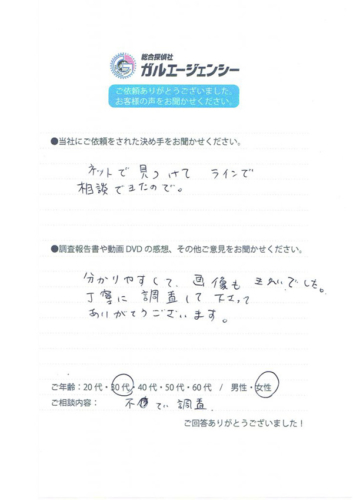 総合探偵社
ガルエージェンシー
ご依頼ありがとうございました。
お客様の声をお聞かせください。
●当社にご依頼をされた決め手をお聞かせください。
ネットで見つけて ラインで
相談できたので。
●調査報告書や動画DVDの感想、その他ご意見をお聞かせください。
分かりやすくて、画像もきれいでした。
丁寧に調査して下さって
ありがとうございます。
ご年齢：20代・30代・40代・50代・60代 / 男性・女性
ご相談内容： 不倫 調査
ご回答ありがとうございました！